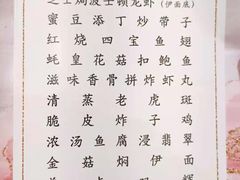 芝士焗波士顿龙虾(伊面底)
蜜豆添丁炒带子
红烧四宝鱼翅
蚝皇花菇扣鲍鱼
滋味香骨拼炸虾丸
清蒸老虎斑
脆皮炸子鸡
浓汤鱼腐浸翡翠
金菇焖伊面